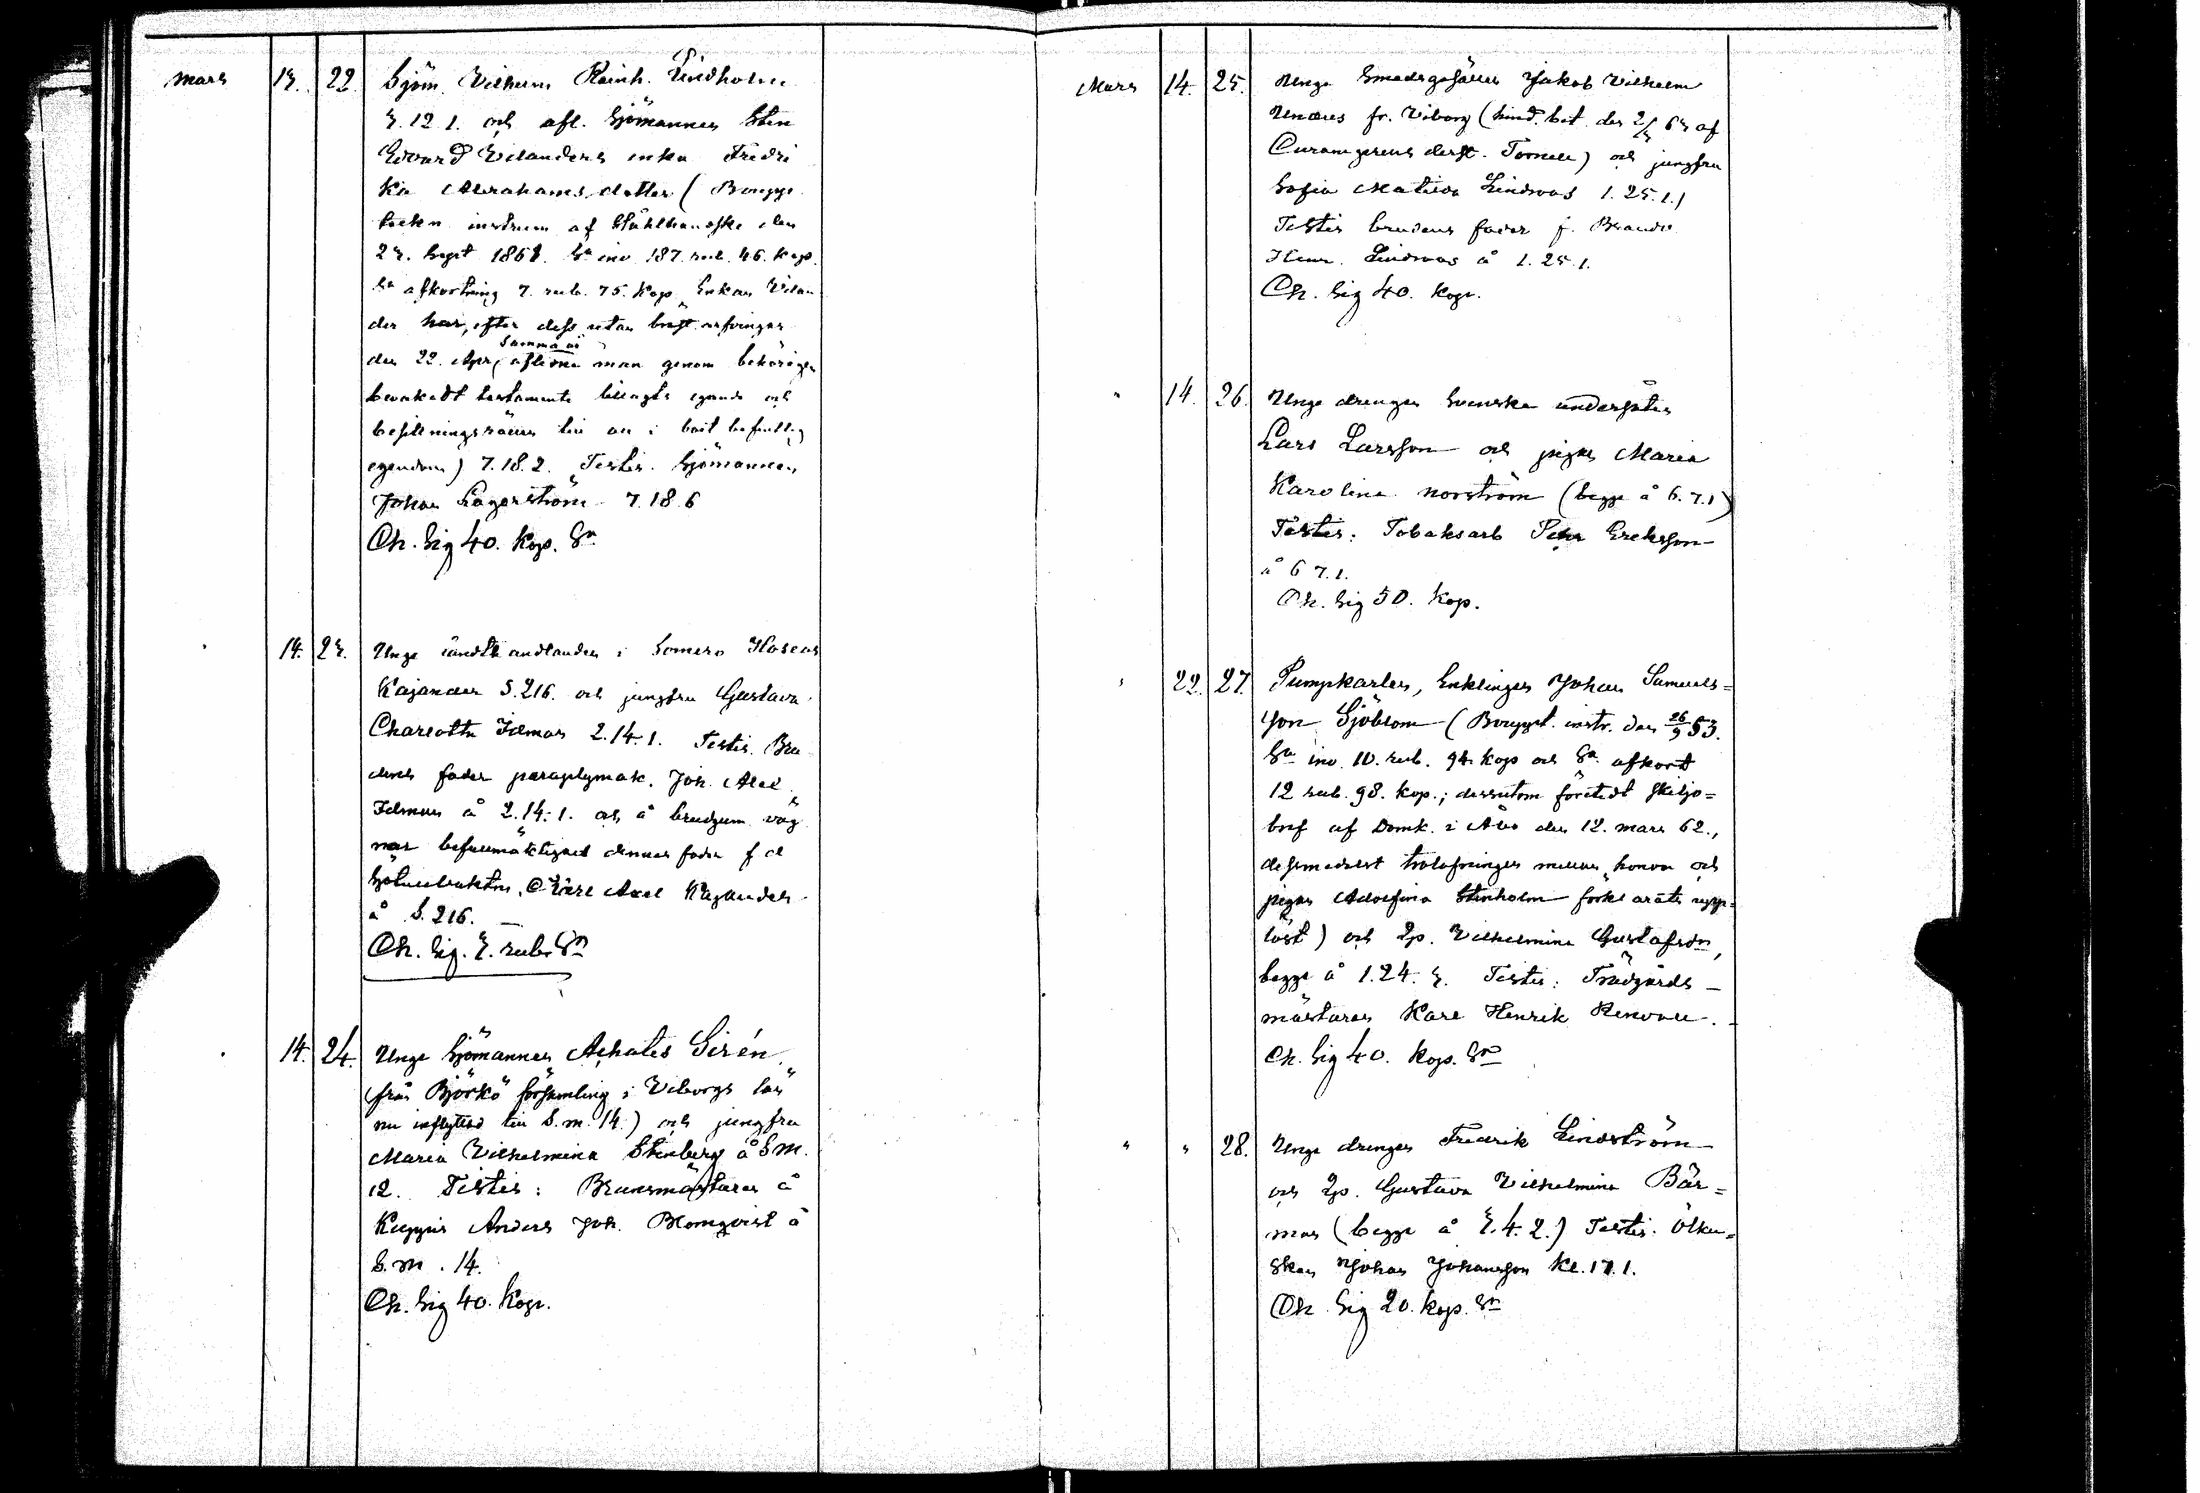 Mars 13. 22. Sjöm. Vilhelm Reinh. Lindholm
3.12.1. och afl. Sjömannen Sten
Edvard Vilanders enka Fredri
ka Abrahamsdotter (Bouppt
teckn. instrum af Stålhandske den
23. Sept 1861. Sr inv 187. rub. 46. kop.
Sr afkortning 7. rub. 75. kop. Enkan Vilan
der har, efter dess utan bröst arfvingar
den 22. Apr. samma år aflidne man genom behörigen
bevakadt testamente tillagts egande och
besittningsrätten till all i boet befintlig
egendom) 7.18.2. Testis. Sjömannen
Johan Lagerström 7.18.6
Ch. Sig 40. Kop. Sr
14. 23. Unge landthandlanden i Somero Hoseas
Kajander S.216. och jungfru Gustava
Charlotta Idman 2.14.1. Testis. Bru
dens fader paraplymak. Joh. Abel
Idman å 2.14.1. och å brudgum. väg
nar befullmäktigad dennes fader f d
Carl Axel Kajander
å S.216.
Ch. Sig. 3. rub. Sr
14. 24. Unge Sjömannen Achates Sirén
(från Björkö församling i Viborgs län
nu inflyttad till S.m.14.) och jungfru
Maria Vilhelmina Stenberg å S.M.
12. Testis: Brunnsmästaren å
Kuppis Anders Joh. Blomqvist å
S.m. 14.
Ch. Sig 40. Kop.
Mars 14. 25. Unge Smedsgesällen Jakob Vilhelm
fr. Viborg (hind. bet. den 2/3 63 af
derst. Tornell) och jungfru
Sofia Matilda Lindroos 1.25.1.)
Testis brudens fader f.
Henr. Lindroos å 1.25.1.
Ch. Sig 40. Kop.
" 14. 26. Unge drengen Svenske undersåten
Lars Larsson och pigan Maria
Karolina Norström (begge å 6.7.1)
Testis: Tobaksarb Pehr Erikson
å 6.7.1.
Ch. Sig 50. Kop.
" 22. 27. Pumpkarlen, Enklingen Johan Samuels=
son Sjöblom (Bouppt. instr. den 26/9 53.
Sr inv. 10. rub. 94. kop och Sr afkort
12 rub. 98. kop.; dessutom företedt skiljo=
bref af Domk. i Åbo den 12. mars 62.,
desmedelst trolofningen mellan honom och
pigan Adolfina Stenholm förklarats upp=
löst) och Qp. Vilhelmina Gustafsdr,
begge å 1.24.3. Testis: Trädgårds-
mästaren Karl Henrik Renvall.
Ch. Sig 40. Kop. Sr
" " 28. Unge drengen Fredrik Lindström
och Qp. Gustava Vilhelmina Bär=
man (begge å 3.4.2.) Testis. Ölku=
sken Johan Johansson Kl.17.1.
Ch. Sig 20. Kop. Sr